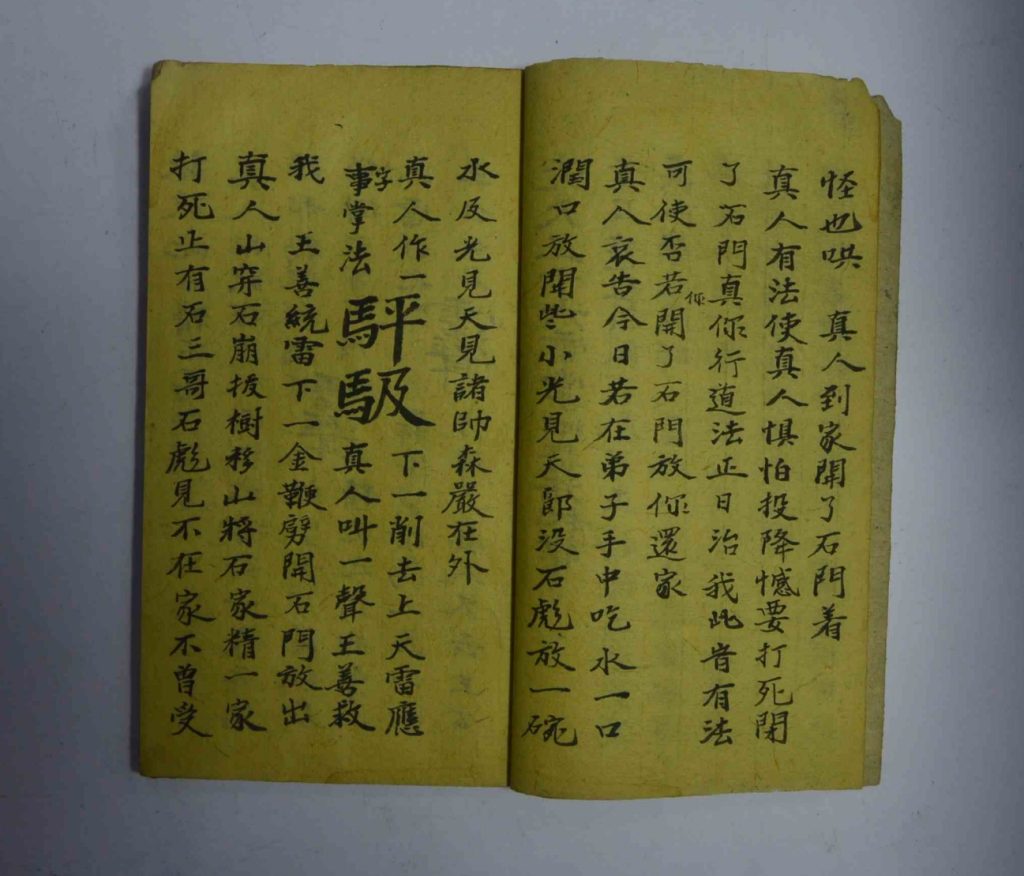 怪也哄　真人到家開了石門着
真人有法使真人惧怕投降憾要打死閉
了石門真你行道法正日治我此昔有法
可使否若你開了石門放你還家
真人哀告今日若在弟子手中吃水一口
潤口放開些小光見天郎没石彪放一碗
水反光見天見諸帥森嚴在外
真人作一字　下一削去上天雷應
事掌法　駍馺　真人叫一聲王善救
我　王善統雷下一金鞭劈開石門放出
真人山穿石崩拔樹移山將石家精一家
打死止有石三哥石彪見不在家不曾受